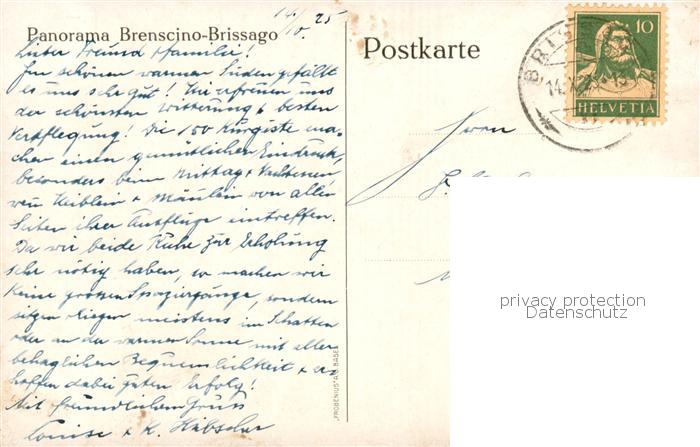 14./X. 25
Panorama Brenscino-Brissago
Lieber Freund & Familie!
Im schönen warmen Süden gefällt
es uns sehr gut! Wir erfreuen uns
der schönsten Witterung & besten
Verpflegung! Die 150 Kurgäste ma-
chen einen gemütlichen Eindruck,
besonders beim Mittag & Nachtessen,
wenn Weiblein & Mänlein von allen
Seiten ihrer Ausflüge eintreffen.
Da wir beide Ruhe zur Erholung
sehr nötig haben, so machen wir
keine grossen Spaziergänge, sondern
sitzen & liegen meistens im Schatten
oder an der warmen Sonne mit aller
behaglichen Bequemlichkeit & er-
hoffen dabei guten Erfolg!
Mit freundlichem Gruss
Louise & K. Hübscher
"FROBENIUS" A.G. BASEL
Postkarte
10
HELVETIA
BRISSAGO
Herrn
privacy protection
Datenschutz